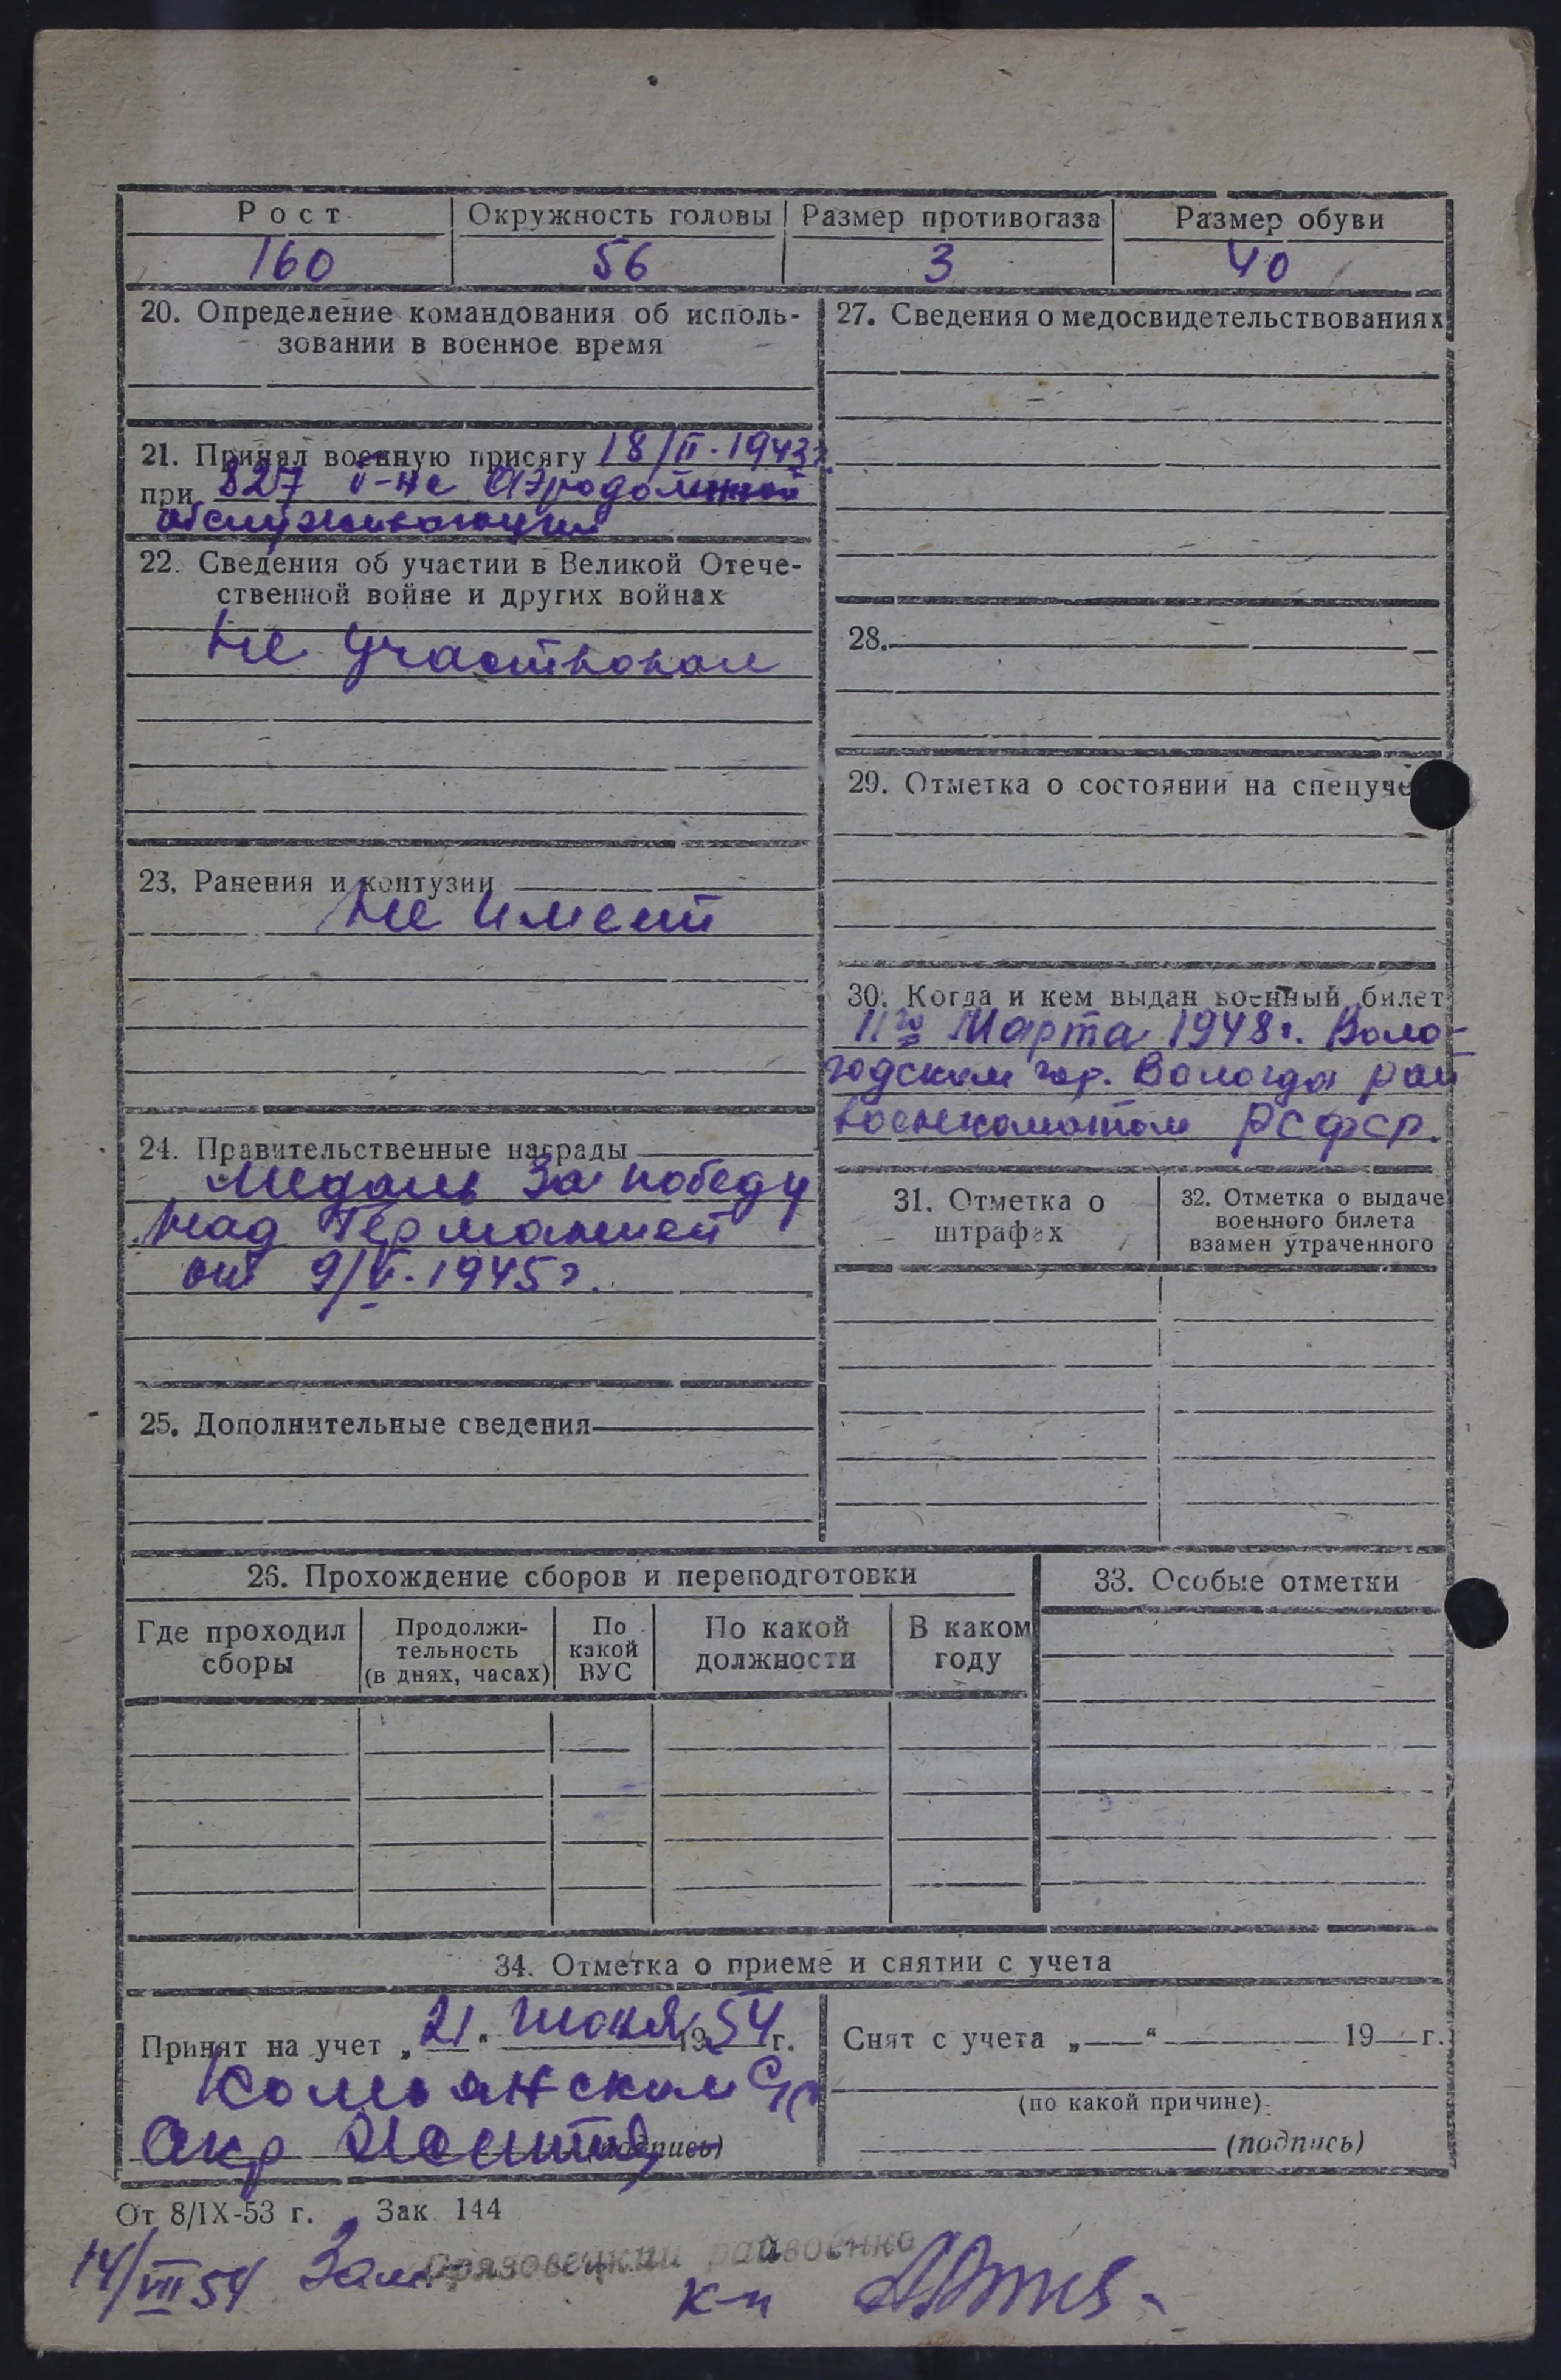 Рост Окружность головы Размер противогаза Размер обуви
160 56 3 40
20. Определение командования об исполь-
зовании в военное время
21. Принял военную присягу 18/II. 1943 г.
при 827 б-не Аэродомной
обслуживающим
22. Сведения об участии в Великой Отече-
ственной войне и других войнах
Не Участвовал
23. Ранения и контузии
Не имеет
24. Правительственные награды
Медаль За победу
над Германией
от 9/V. 1945 г.
25. Дополнительные сведения
27. Сведения о медосвидетельствованиях
28.
29. Отметка о состоянии на спецуче
30. Когда и кем выдан военный билет
11го Марта 1948 г. Воло-
годским гор. Вологда рай
военкоматом РСФСР.
31. Отметка о
штрафах
32. Отметка о выдаче
военного билета
взамен утраченного
26. Прохождение сборов и переподготовки
Где проходил
сборы
Продолжи-
тельность
(в днях, часах)
По
какой
ВУС
По какой
должности
В каком
году
33. Особые отметки
34. Отметка о приеме и снятии с учета
Принят на учет „21“ Июня 1954 г.
(подпись)
Снят с учета „—“ 19 г.
(по какой причине)
(подпись)
От 8/IX-53 г. Зак 144
14/VII 54 Зам. Грязовецкий райвоенко
к-н